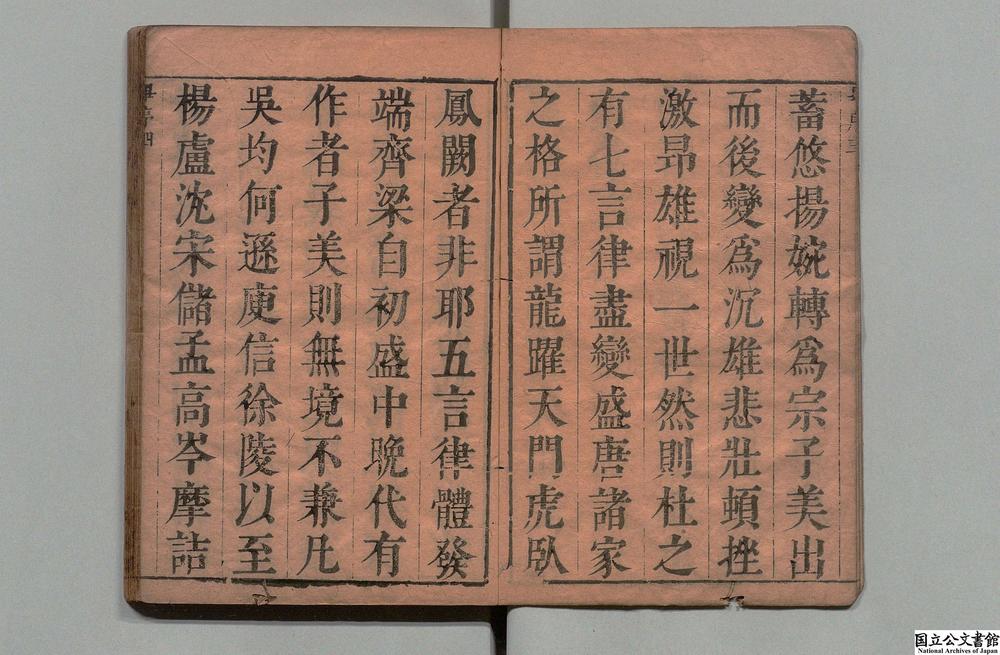 蓄悠揚婉轉爲宗子美出
而後變爲沉雄悲壯頓挫
激昻雄視一世然則杜之
有七言律盡變盛唐諸家
之格所謂龍躍天門虎臥
鳳闕者非耶五言律體發
端齊梁自初盛中晚代有
作者子美則無境不兼凡
吳均何遜庾信徐陵以至
楊盧沈宋儲孟高岑摩詰
国立公文書館
National Archives of Japan